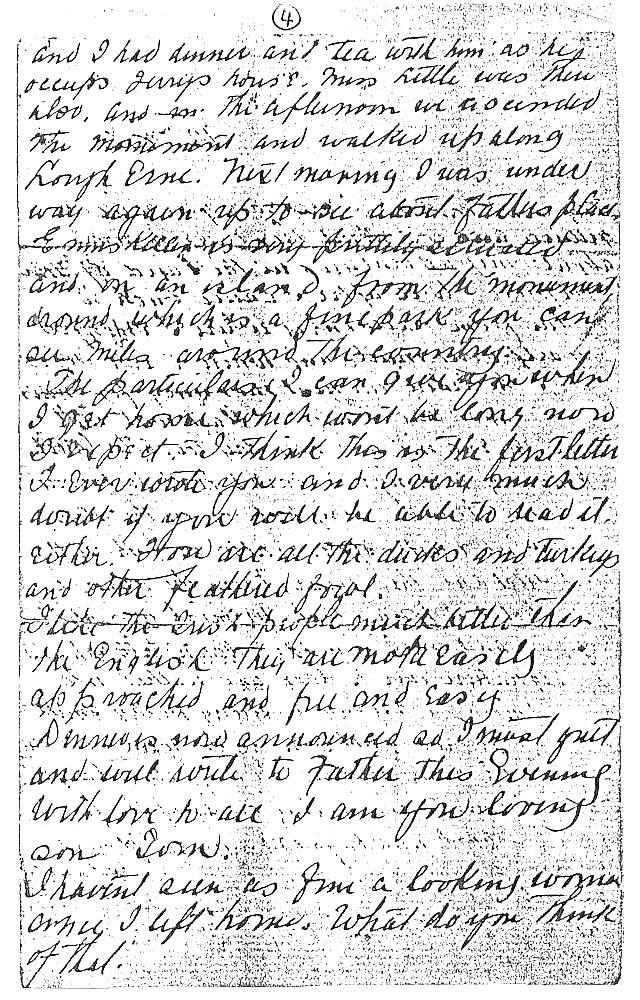 4
and I had dinner and tea with him as he
occups Jerrys house. Miss Kittle was then
also, and in the afternoon we ascended
the monument and walked up along
Lough Erne. Next morning I was under
way again up to see about Fathers place.
Enniskillen is very prettily situated
and on an island, from the monument
around which is a fine park you can
see miles around the country.
The particulars I can give you when
I get home which wont be long now
I expect. I think this is the first letter
I Ever wrote you and I very much
doubt if you will be able to read it
either. How are all the ducks and turkeys
and other feathered fowl.
I like the Irish people much better than
the English They are more Easely
approached and free and Easy
Dinner is now announced so I must quit
and will write to Father this Evening
With love to all I am you loving
son Tom.
I havent seen as fine a looking woman
since I left home. What do you think
of that.